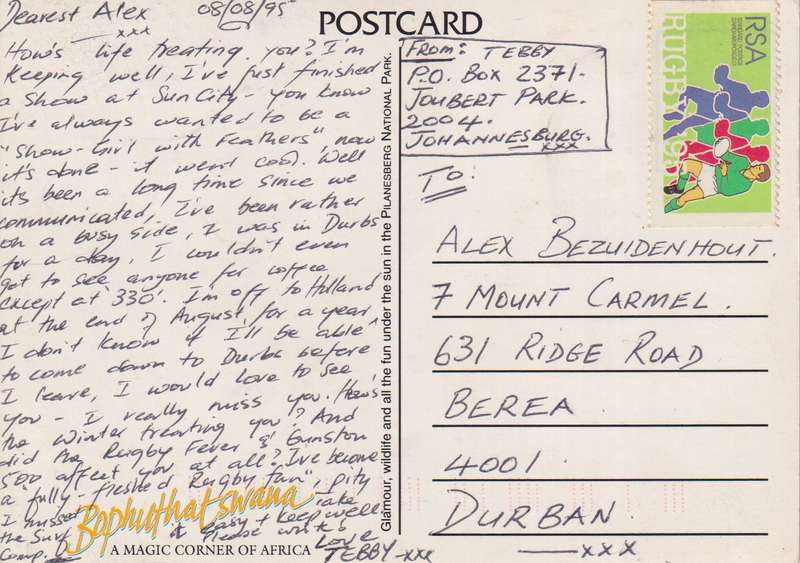 Dearest Alex 08/08/95
xxx
How's life treating you? I'm
keeping well, I've just finished
a show at Sun City - you know
I've always wanted to be a
"Show-Girl with Feathers", now
it's done - it went cool. Well
its been a long time since we
communicated, I've been rather
on a busy side, I was in Durbs
for a day, I wouldn't even
get to see anyone for coffee
except at '330'. I'm off to Holland
at the end of August, for a year
I don't know if I'll be able
to come down to Durbs before
I leave, I would love to see
you - I really miss you. How's
the winter treating you? And
did the Rugby Fever & Gunston
500 affect you at all? I've become
a "fully-fleshed Rugby fan", pity
I missed
the Surf
Comp.
Take
it easy + keep well
Please write
Love
TEBBY -xxx
Bophuthatswana
A MAGIC CORNER OF AFRICA
Glamour, wildlife and all the fun under the sun in the PILANESBERG NATIONAL PARK.
POSTCARD
FROM: TEBBY
P.O. BOX 2371.
JOUBERT PARK.
2004.
JOHANNESBURG.
xxx
RSA
RUGBY
TO:
ALEX BEZUIDENHOUT.
7 MOUNT CARMEL.
631 RIDGE ROAD
BEREA
4001.
DURBAN
xxx